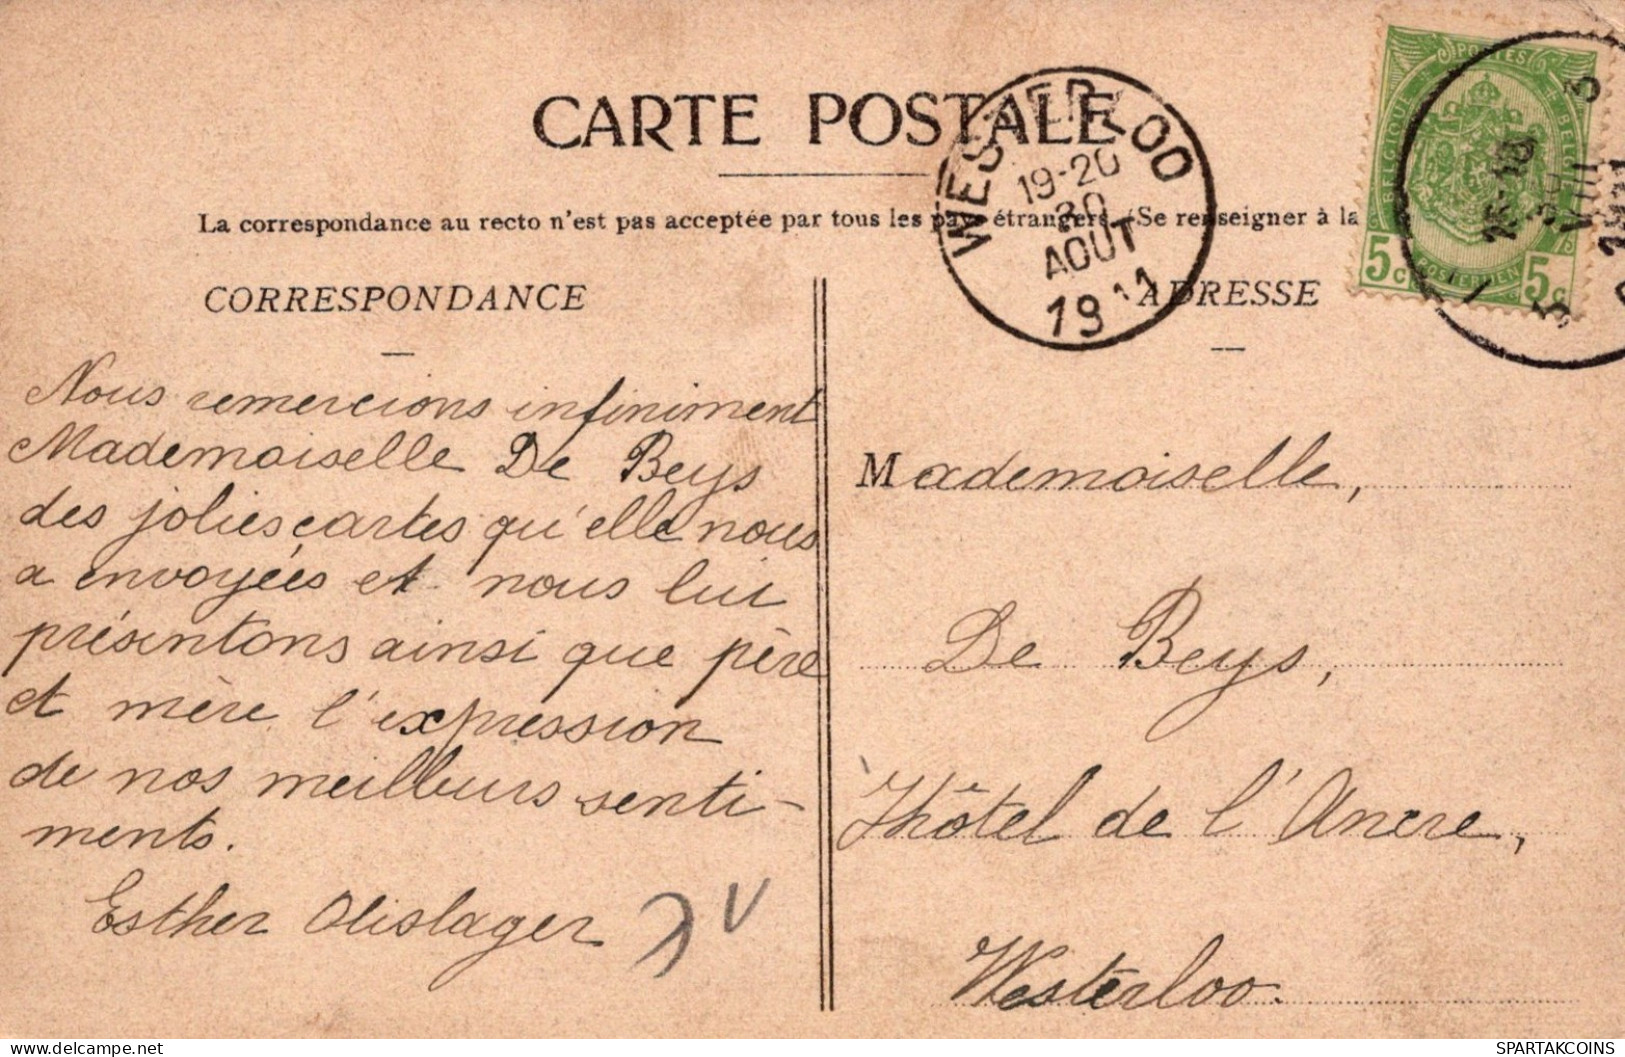 CARTE POSTALE
La correspondance au recto n'est pas acceptée par tous les pays étrangers. (Se renseigner à la
WESTERLOO
19-20
30
AOUT
1911
POSTES
BELGIQUE
BELGIE
POSTERIJEN
5c 5c
CORRESPONDANCE
Nous remercions infiniment
Mademoiselle De Beys
des jolies cartes qu'elle nous
a envoyées et nous lui
présentons ainsi que père
et mère l'expression
de nos meilleurs senti-
ments.
Esther Olislager
ADRESSE
Mademoiselle,
De Beys,
Hôtel de l'Ancre,
Westerloo.
www.delcampe.net
SPARTAKCOINS